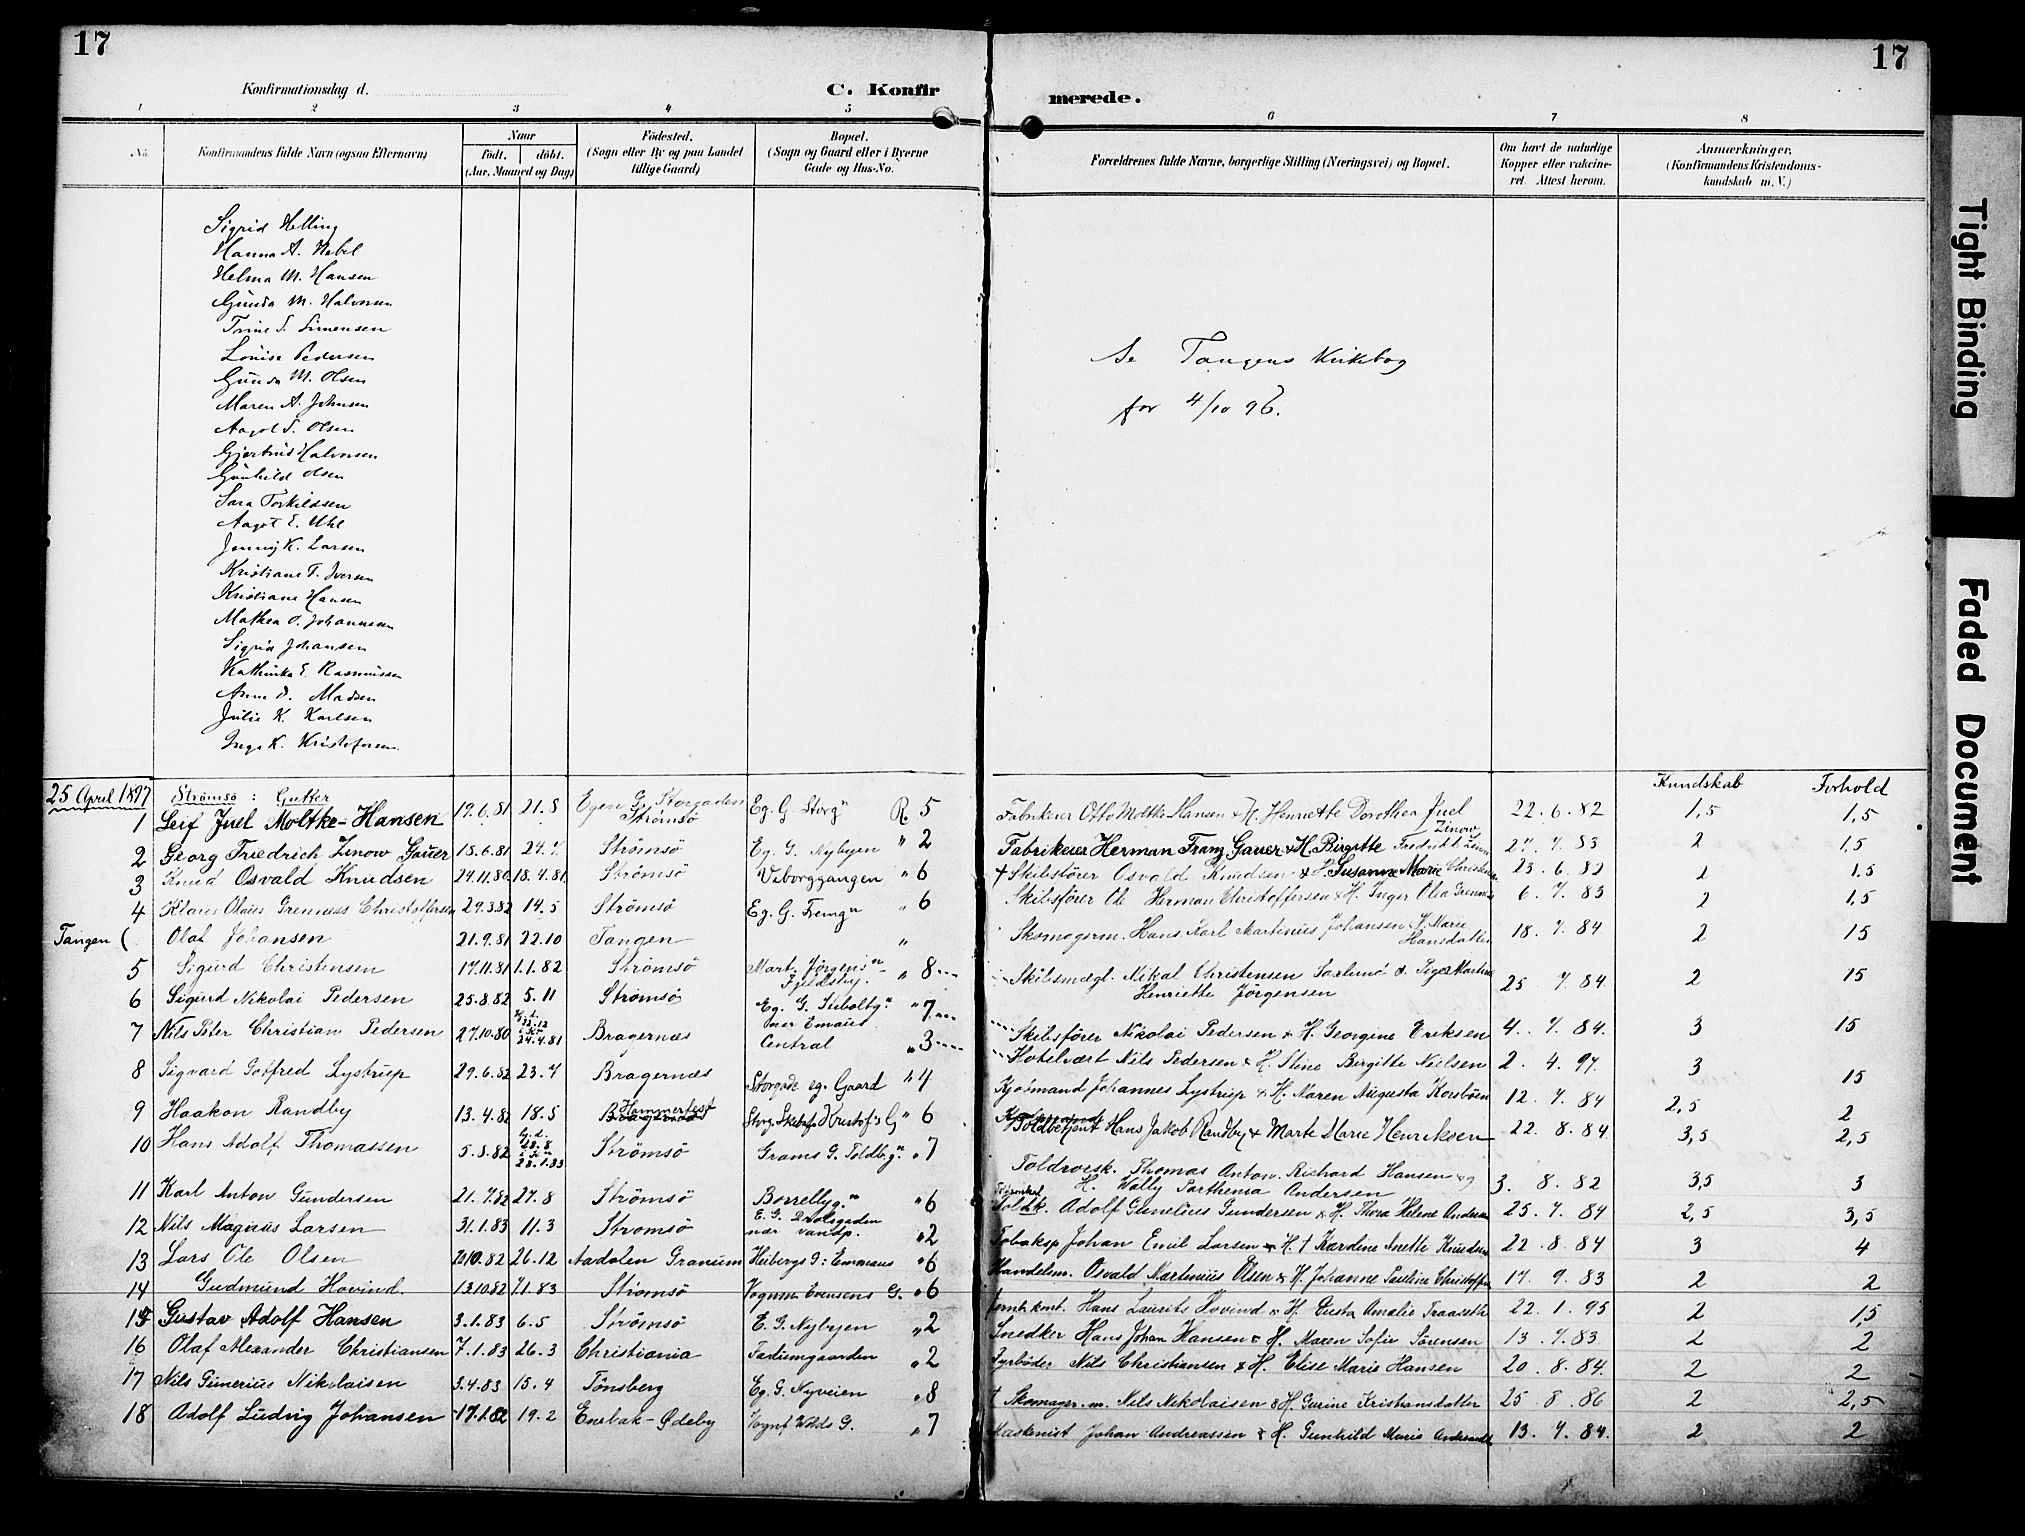 17
17
Konfirmationsdag d.
C. Konfir
merede.
1 2 3 4 5 6 7 8
No.
Konfirmandens fulde Navn (ogsaa Efternavn)
Naar
födt. döbt.
(Aar, Maaned og Dag)
Födested.
(Sogn eller By og paa Landet
tillige Gaard)
Bopæl.
(Sogn og Gaard eller i Byerne
Gade og Hus-No.
Forældrenes fulde Navne, borgerlige Stilling (Næringsvei) og Bopæl.
Om havt de naturlige
Kopper eller vakcine-
ret. Attest herom.
Anmærkninger.
(Konfirmandens Kristendoms-
kundskab m.V.)
Sigrid Helling
Hanna A. Nebel
Helma M. Hansen
Gunda M. Halvorsen
Trine S. Simensen
Louise Pedersen
Gunda M. Olsen
Maren A. Johnsen
Aagot S. Olsen
Gjertrud Halvorsen
Gunhild Olsen
Sara Torkildsen
Aagot E. Uhl
Jenny K. Larsen
Kristiane T. Iversen
Kristiane Hansen
Mathea O. Johannesen
Sigrid Johansen
Kathinka E. Rasmussen
Anna D. Madsen
Julie K. Karlsen
Inga K. Kristofersen
Se Tangens Kirkebog
for 4/10 96.
25 April 1897 Strömsö: Gutter Kundskab Forhold
1 Leif Juel Moltke-Hansen 19.6.81 21.8 Egen G. Storgaden Strömsö Eg. G Storgn R. 5 Fabrikeier Otto Moltke Hansen & H. Henriette Dorothea Juel 22.6.82 1,5 1,5
2 Georg Friedrich Zinow Gauer 18.6.81 24.7 Strömsö Eg. G. Nybyen " 2 Fabrikeier Herman Franz Gauer & H. Birgitte Fredrikke Zinow 27.7.83 2 1,5
3 Knud Osvald Knudsen 24.11.80 18.4.81 Strömsö Viborggangen " 6 † Skibsförer Osvald Knudsen & H. Susanne Marie 23.6.82 2 1,5
4 Klaus Olaus Grenness Christoffersen 29.3.82 14.5 Strömsö Eg. G. " 6 Skibsförer Ole Herman Christoffersen & H. Inger Olea Grenness 6.7.83 2 1,5
Tangen ( Olaf Johansen 21.9.81 22.10 Tangen " Skomagerm. Hans Karl Martinius Johansen & Marie Hansdatter 18.7.84 2 15
5 Sigurd Christensen 17.11.81 1.1.82 Strömsö Mart. Jörgensn Fjeldsby. " 8 Skibsmægl. Nikal Christensen & Martine Henriette Jörgensen 25.7.84 2 15
6 Sigurd Nikolai Pedersen 25.8.82 5.11 Strömsö Eg. G. nær Emaus " 7 Skibsförer Nikolai Pedersen & H. Georgine Eriksen 4.7.84. 3 15
7 Nils Peter Christian Pedersen 27.10.80 24.4.81 Bragernæs Central " 3 Hotelvært Nils Pedersen & H. Stine Birgitte Nielsen 2.4.97. 3 15
8 Sigvard Gotfred Lystrup 29.6.82 23.7 Bragernæs Storgade eg. Gaard " 4 Kjöbmand Johannes Lystrup & H. Maren Augusta 12.7.84 2,5 2
9 Haakon Randby 13.4.82 18.5 Hammerfest Storg. Kristofs G " 6 Toldbetjent Hans Jakob Randby & Marte Marie Henriksen 22.8.84 3,5 2,5
10 Hans Adolf Thomassen 5.8.82 28.1.83 Strömsö Grams G. Toldbgn. " 7 Toldrorsk. Thomas Anton Richard Hansen og H. Wally Parthenia Andersen 3.8.82 3,5 3
11 Karl Anton Gundersen 21.7.82 27.8 Strömsö Borrellyg.n " 6 Toldk. Adolf Gunelius Gundersen & H. Thora Helene Andersen 25.7.84 2,5 3,5
12 Nils Magnus Larsen 31.1.83 11.3 Strömsö E. G. nær Vandp. " 2 Tobaksp Johan Emil Larsen & H. † Kardine Anette Knudsen 22.8.84 3 4
13 Lars Ole Olsen 26.12 Aadalen Granum Heibergs G: Emmaus " 6 Handelsm. Osvald Martinius Olsen & H. Johanne Pauline 17.9.83 2 2
14 Gudmund Hovind. 13.10.82 7.1.83 Strömsö Vognm. Evensens G. " 6 Jernb. kont. Hans Laurits Hovind & H. Gusta Amalie 22.1.95 2 1,5
15 Gustav Adolf Hansen 3.1.83 6.5 Strömsö E. G. Nybyen " 2 Snedker Hans Johan Hansen & H. Maren Sofie Sörensen 13.7.83 2 2
16 Olaf Alexander Christiansen 7.1.83 26.3 Christiania Fadumgaarden " 2 Fyrböder Nils Christiansen & H. Elise Marie Hansen 20.8.84. 2 2
17 Nils Gunerius Nikolaisen 3.4.83 15.4 Tönsberg Eg. G. Nyveien " 8 † Skomager.m. Nils Nikolaisen & H. Gurine Kristiansdatter 25.8.86 2 2,5
18 Adolf Ludvig Johansen 17.1.82 19.2 Enebak-Ödeby G. " 7 Maskinist Johan Andreassen & H. Gunhild Marie 13.7.84. 2 2
Tight Binding
Faded Document